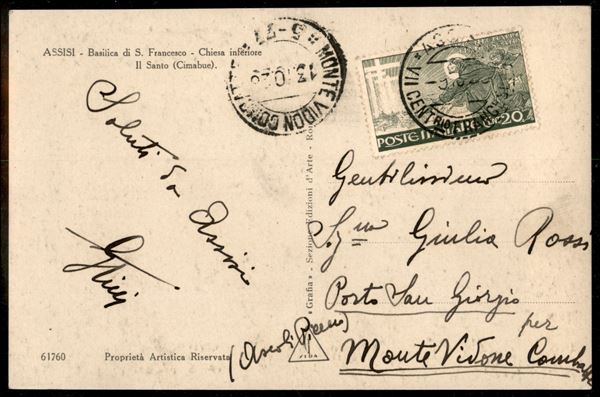 ASSISI - Basilica di S. Francesco - Chiesa inferiore
Il Santo (Cimabue).
MONTE VIDON COMBATTE
13.10.26
POSTE ITALIANE
C. 20
Saluti da Assisi
Gentilissimo
Sig.na Giulia Rossi
Porto San Giorgio
per
Monte Vidone Combatte
(Ascoli Piceno)
« Grafia » - Sezione Edizioni d'Arte - Ro
VIDA
61760 Proprietà Artistica Riservata